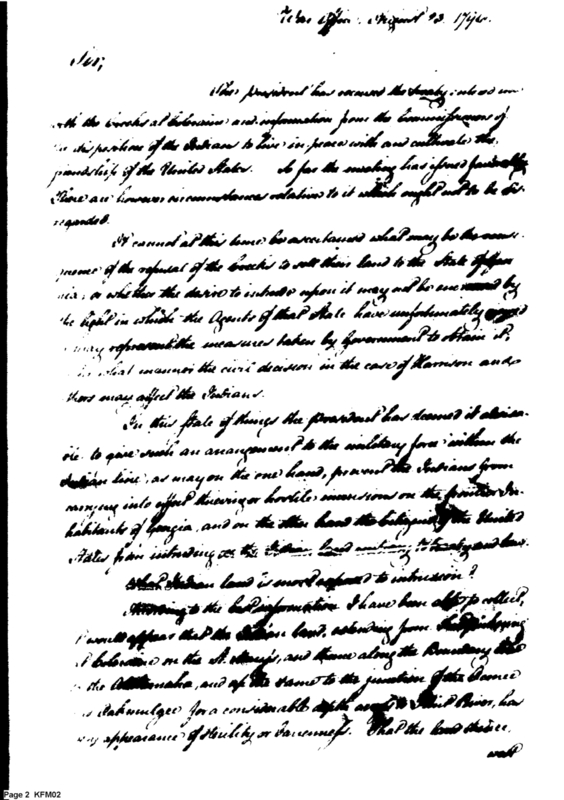 War Office August 23. 1796.
Sir,
The President has received the treaty entered in
with the Creeks at Coleraine and information from the Commissioners of
dispositions of the Indians to live in peace with and cultivate the
friendship of the United States. So far the meeting has issued favorably
There are however circumstances relative to it which ought not to be dis
regarded.
It cannot at this time be ascertained what may be the conse
quence of the refusal of the Creeks to sell their land to the State of Geor
gia; or whether the desire to intrude upon it may not be by
the light in which the Agents of that State have unfortunately
may represent the measures taken by Government to obtain it;
in what manner the civil decision in the case of Harrison and
others may affect the Indians.
In this state of things the President has deemed it advisa
ble to give such an arrangement to the military force within the
Indian line, as may on the one hand, prevent the Indians from
carrying into effect thieving or hostile incursions on the frontier In
habitants of Georgia, and on the other hand the of the United
States from intruding on the Indian land contrary to treaty and law.
What Indian land is most exposed to intrusion?
According to the best information I have been able to collect,
it would appear that the Indian land, extending from
at Coleraine on the St. Mary's, and thence along the Boundary line
to the Alatamaha, and up the same to the junction of the Oconee
Oakmulgee for a considerable depth River, has
appearance of sterility or barrenness. That the land thence,
well
Page 2 KFM02